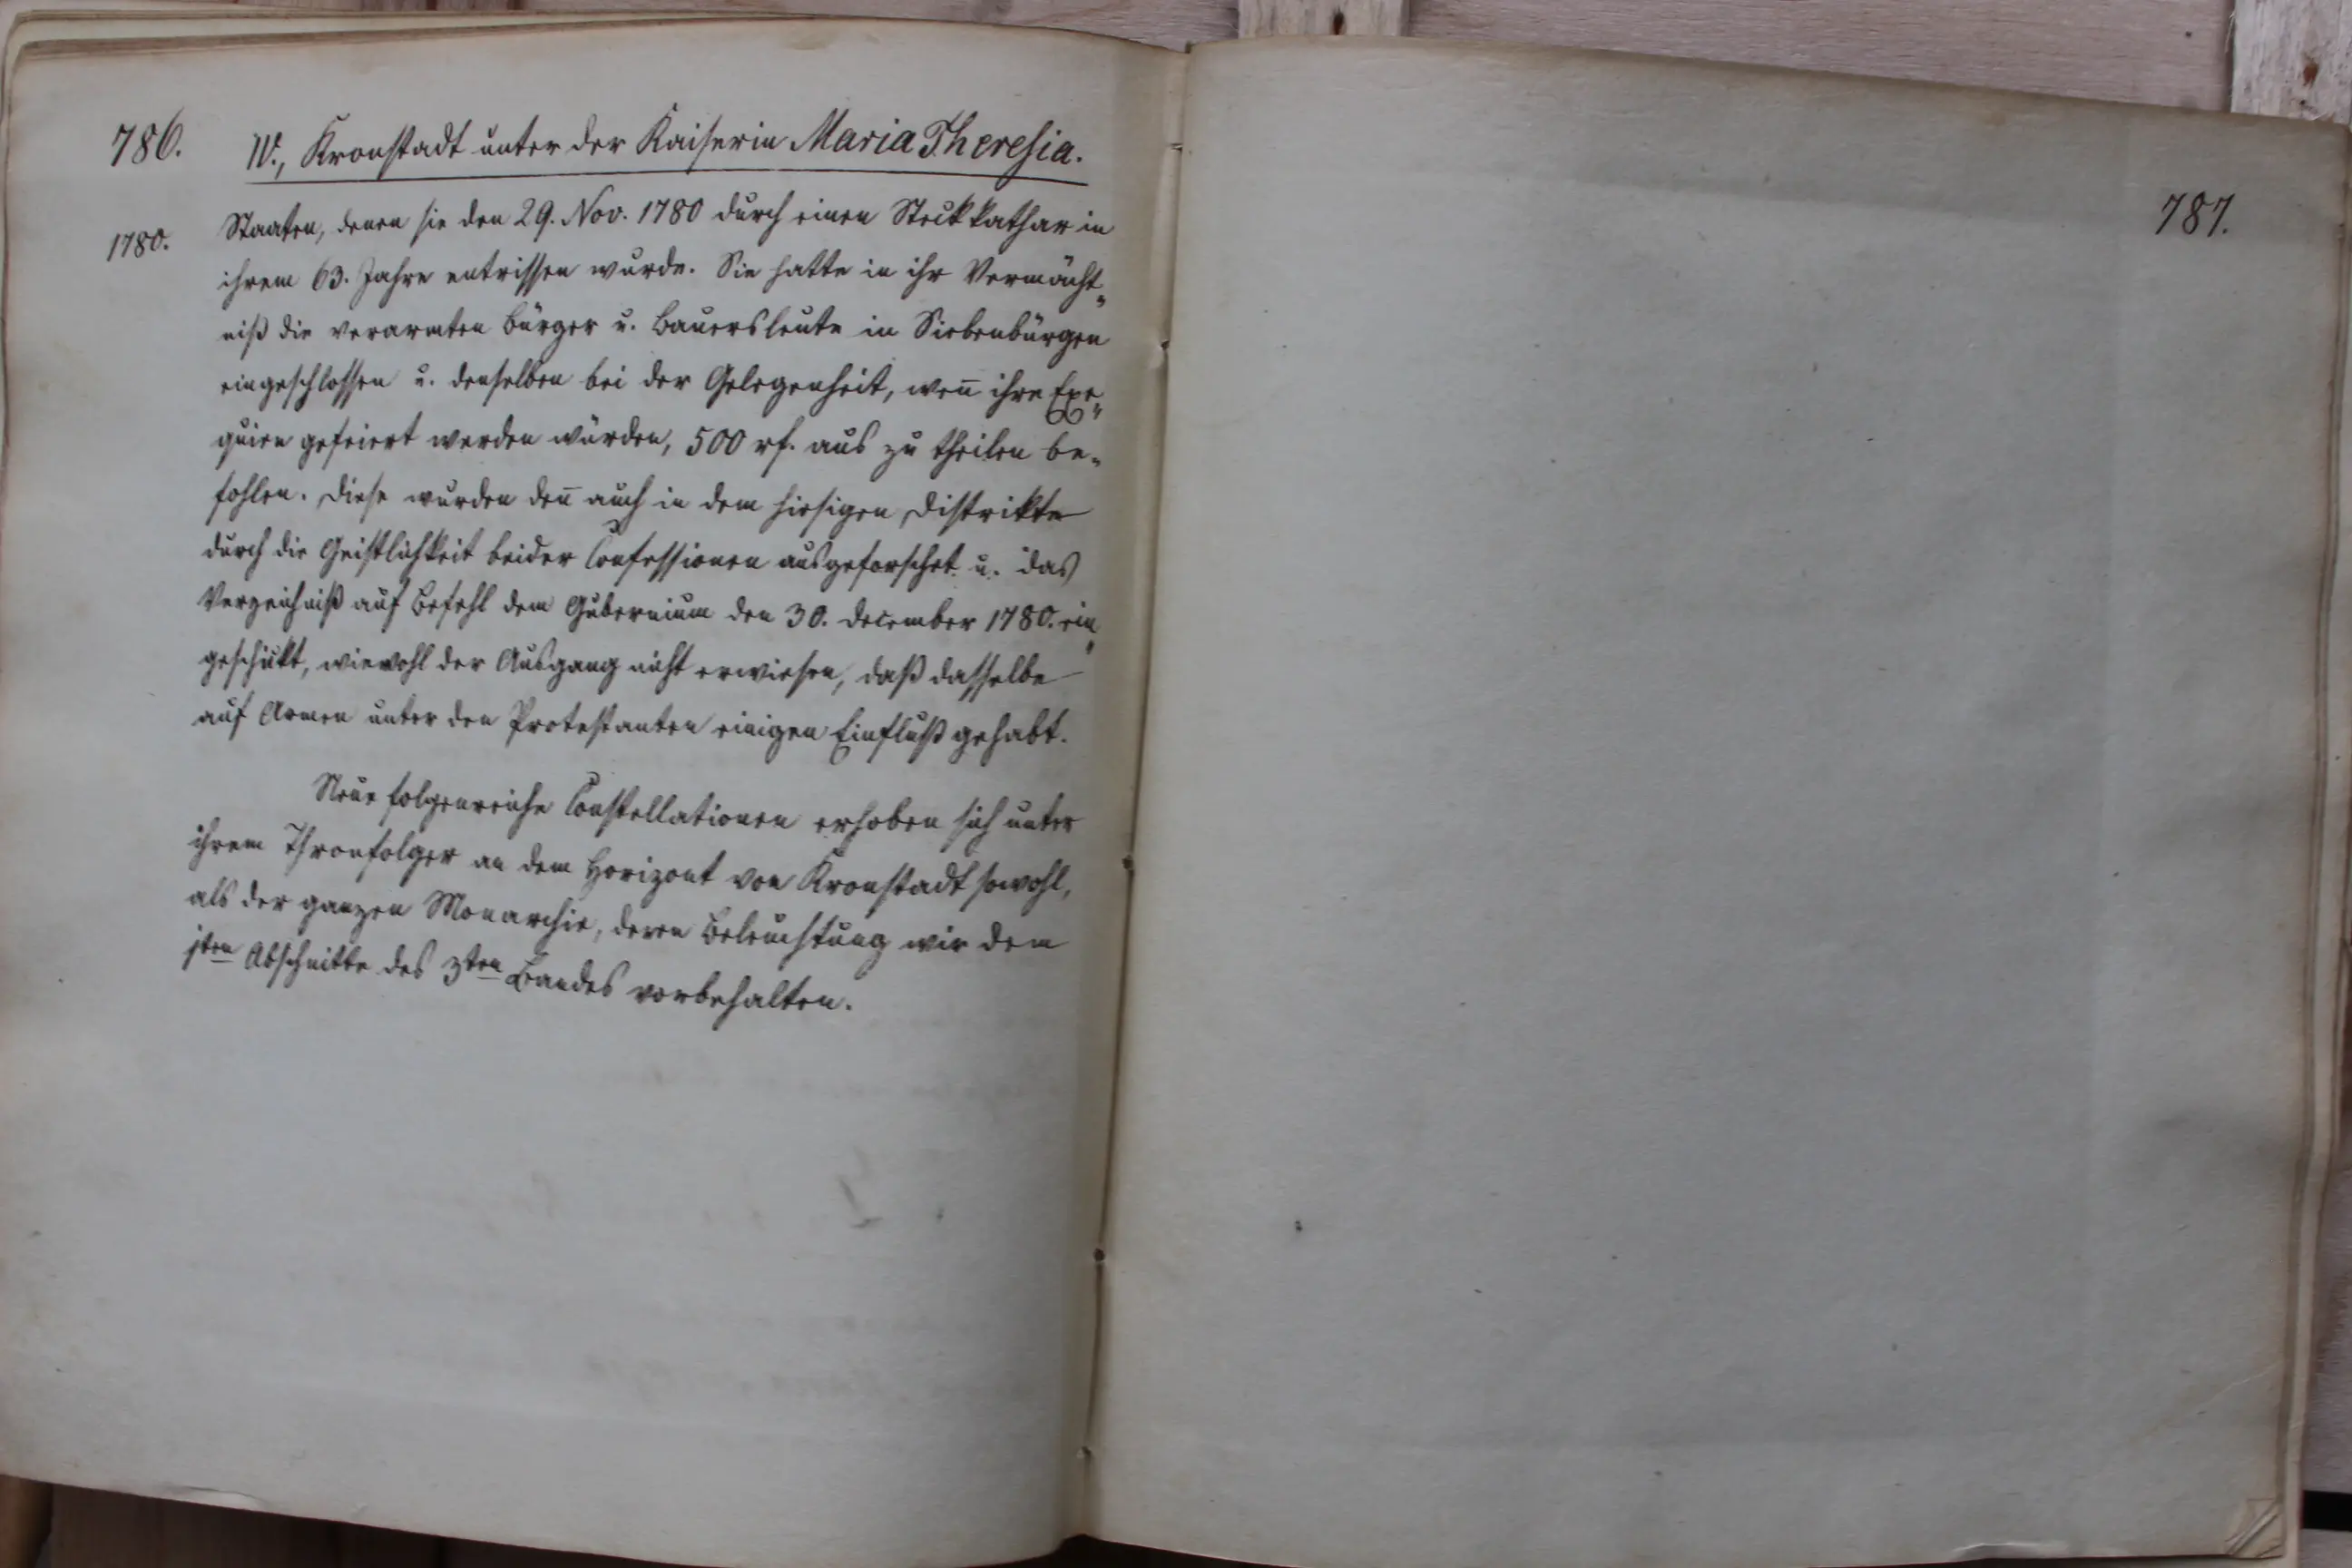 786.
IV., Kronstadt unter der Kaiserin Maria Theresia.
1780.
Staaten, denen sie den 29. Nov. 1780 durch einen Steckkathar in
ihrem 63. Jahre entrissen wurde. Sie hatte in ihr Vermächt„
niß die verarmten Bürger u. Bauersleute in Siebenbürgen
eingeschlossen u. denselben bei der Gelegenheit, wen̄ ihre Exe„
quien gefeiert werden würden, 500 rf. aus zu theilen be„
fohlen. Diese wurden den̄ auch in dem hiesigen Distrikte
durch die Geistlichkeit beider Confessionen ausgeforschet u. das
Verzeichniß auf Befehl dem Gubernium den 30. December 1780. ein„
geschickt, wiewohl der Ausgang nicht erwiesen, daß dasselbe
auf Armen unter den Protestanten einigen Einfluß gehabt.
Neue folgenreiche Constellationen erhoben sich unter
ihrem Thronfolger an dem Horizont von Kronstadt sowohl,
als der ganzen Monarchie, deren Beleuchtung wir dem
1ten Abschnitte des 3ten Bandes vorbehalten.
787.